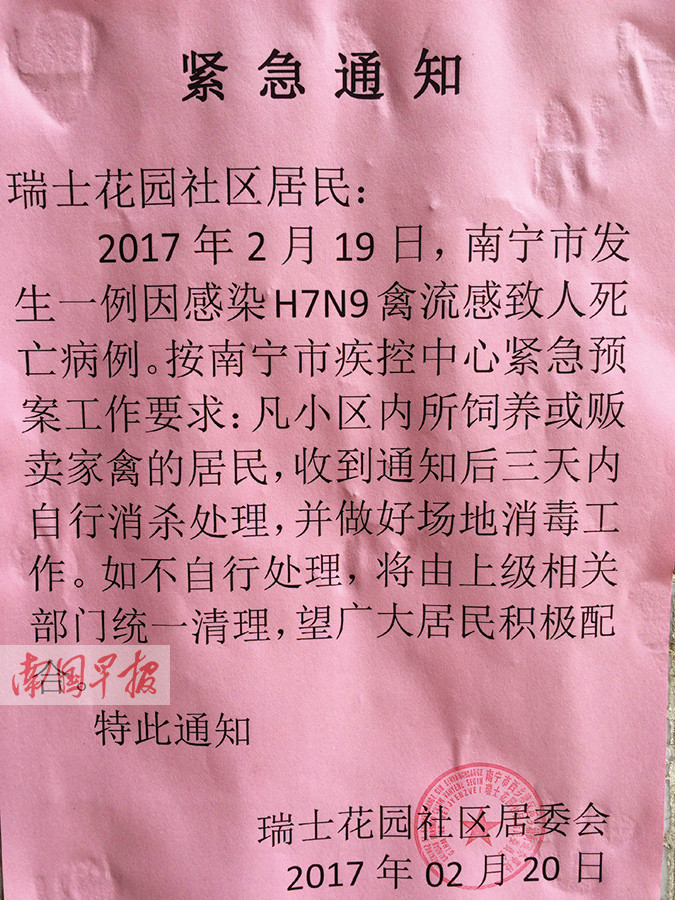 紧急通知
瑞士花园社区居民：
2017年2月19日，南宁市发
生一例因感染H7N9禽流感致人死
亡病例。按南宁市疾控中心紧急预
案工作要求：凡小区内所饲养或贩
卖家禽的居民，收到通知后三天内
自行消杀处理，并做好场地消毒工
作。如不自行处理，将由上级相关
部门统一清理，望广大居民积极配
合。
南国早报
特此通知
瑞士花园社区居委会
2017年02月20日